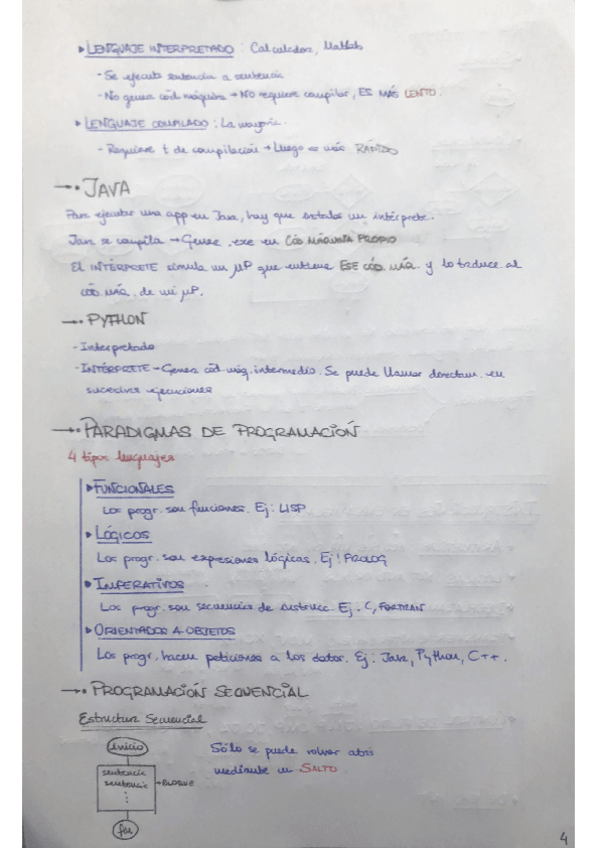 ▸ LENGUAJE INTERPRETADO : Calculadora, Matlab
- Se ejecuta sentencia a sentencia
- No genera cód. máquina → NO requiere compilar, ES MÁS LENTO.
▸ LENGUAJE COMPILADO : La mayoría.
- Requiere t de compilación → Luego es más RÁPIDO
→• JAVA
Para ejecutar una app en Java, hay que instalar un intérprete.
Java se compila → Genera .exe en CÓD. MÁQUINA PROPIO
El INTÉRPRETE simula un μP que entiene ESE CÓD. MÁQ. y lo traduce al
CÓD. MÁQ. de mi μP.
→• PYTHON
- Interpretado
- INTÉRPRETE → Genera cód. máq. intermedio. Se puede llamar directam. en
sucesivas ejecuciones
→• PARADIGMAS DE PROGRAMACIÓN
4 tipos lenguajes
▸ FUNCIONALES
Los progr. son funciones. Ej: LISP
▸ LÓGICOS
Los progr. son expresiones lógicas. Ej: PROLOG
▸ IMPERATIVOS
Los progr. son secuencias de instrucc. Ej. C, FORTRAN
▸ ORIENTADOS A OBJETOS
Los progr. hacen peticiones a los datos. Ej: Java, Python, C++.
→• PROGRAMACIÓN SEQUENCIAL
Estructura Secuencial
inicio
sentencia
sentencia → BLOQUE
⋮
fin
Sólo se puede volver atrás
mediante un SALTO
4